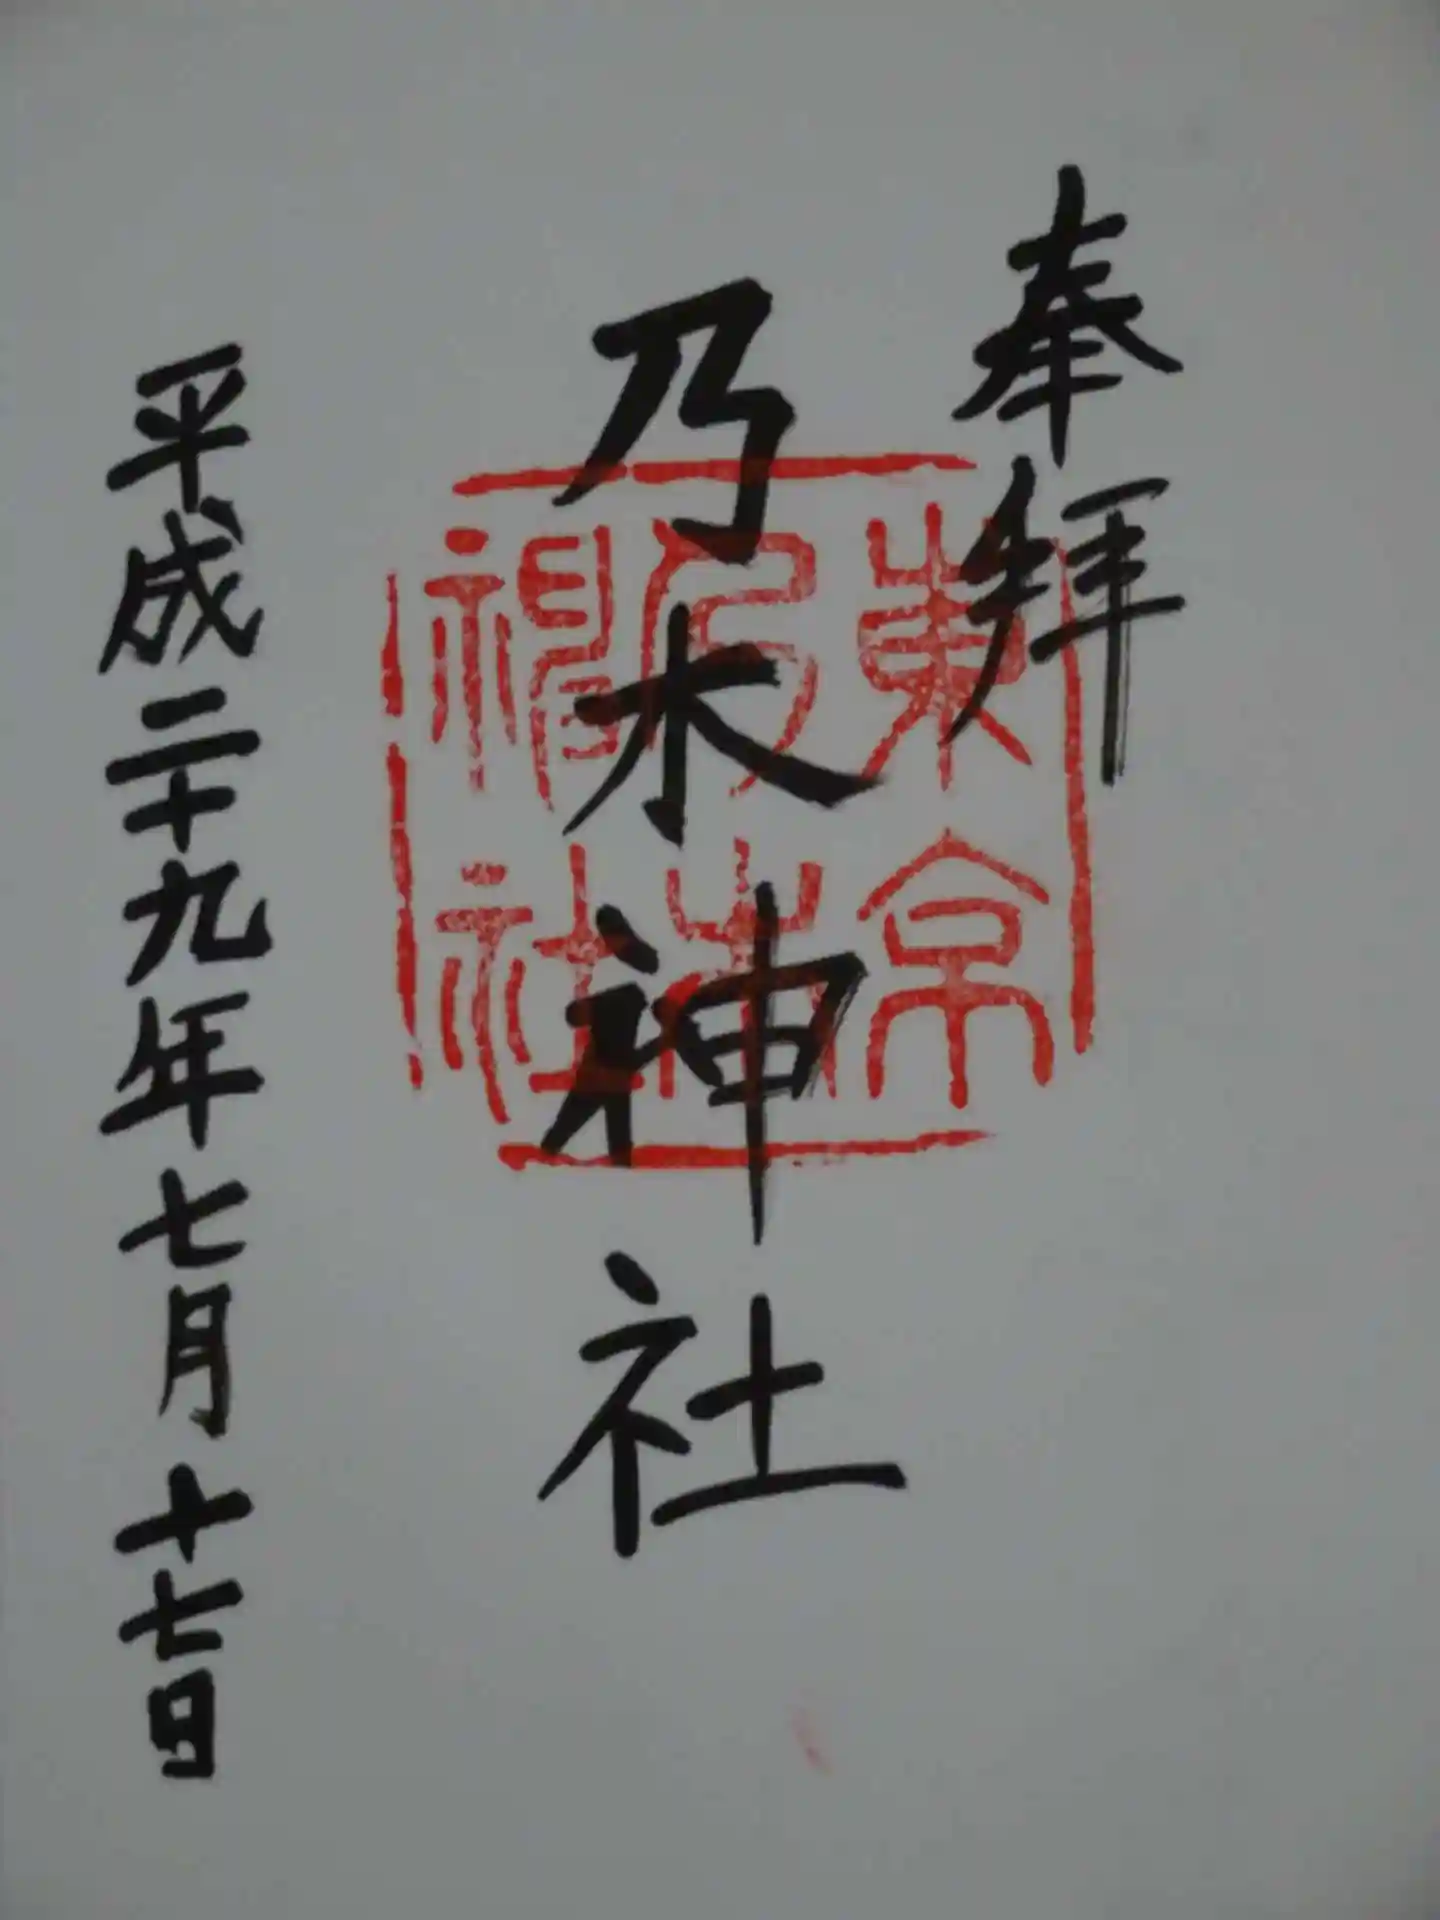 奉拝
乃木神社
東京
乃木
神社
平成二十九年七月十七日